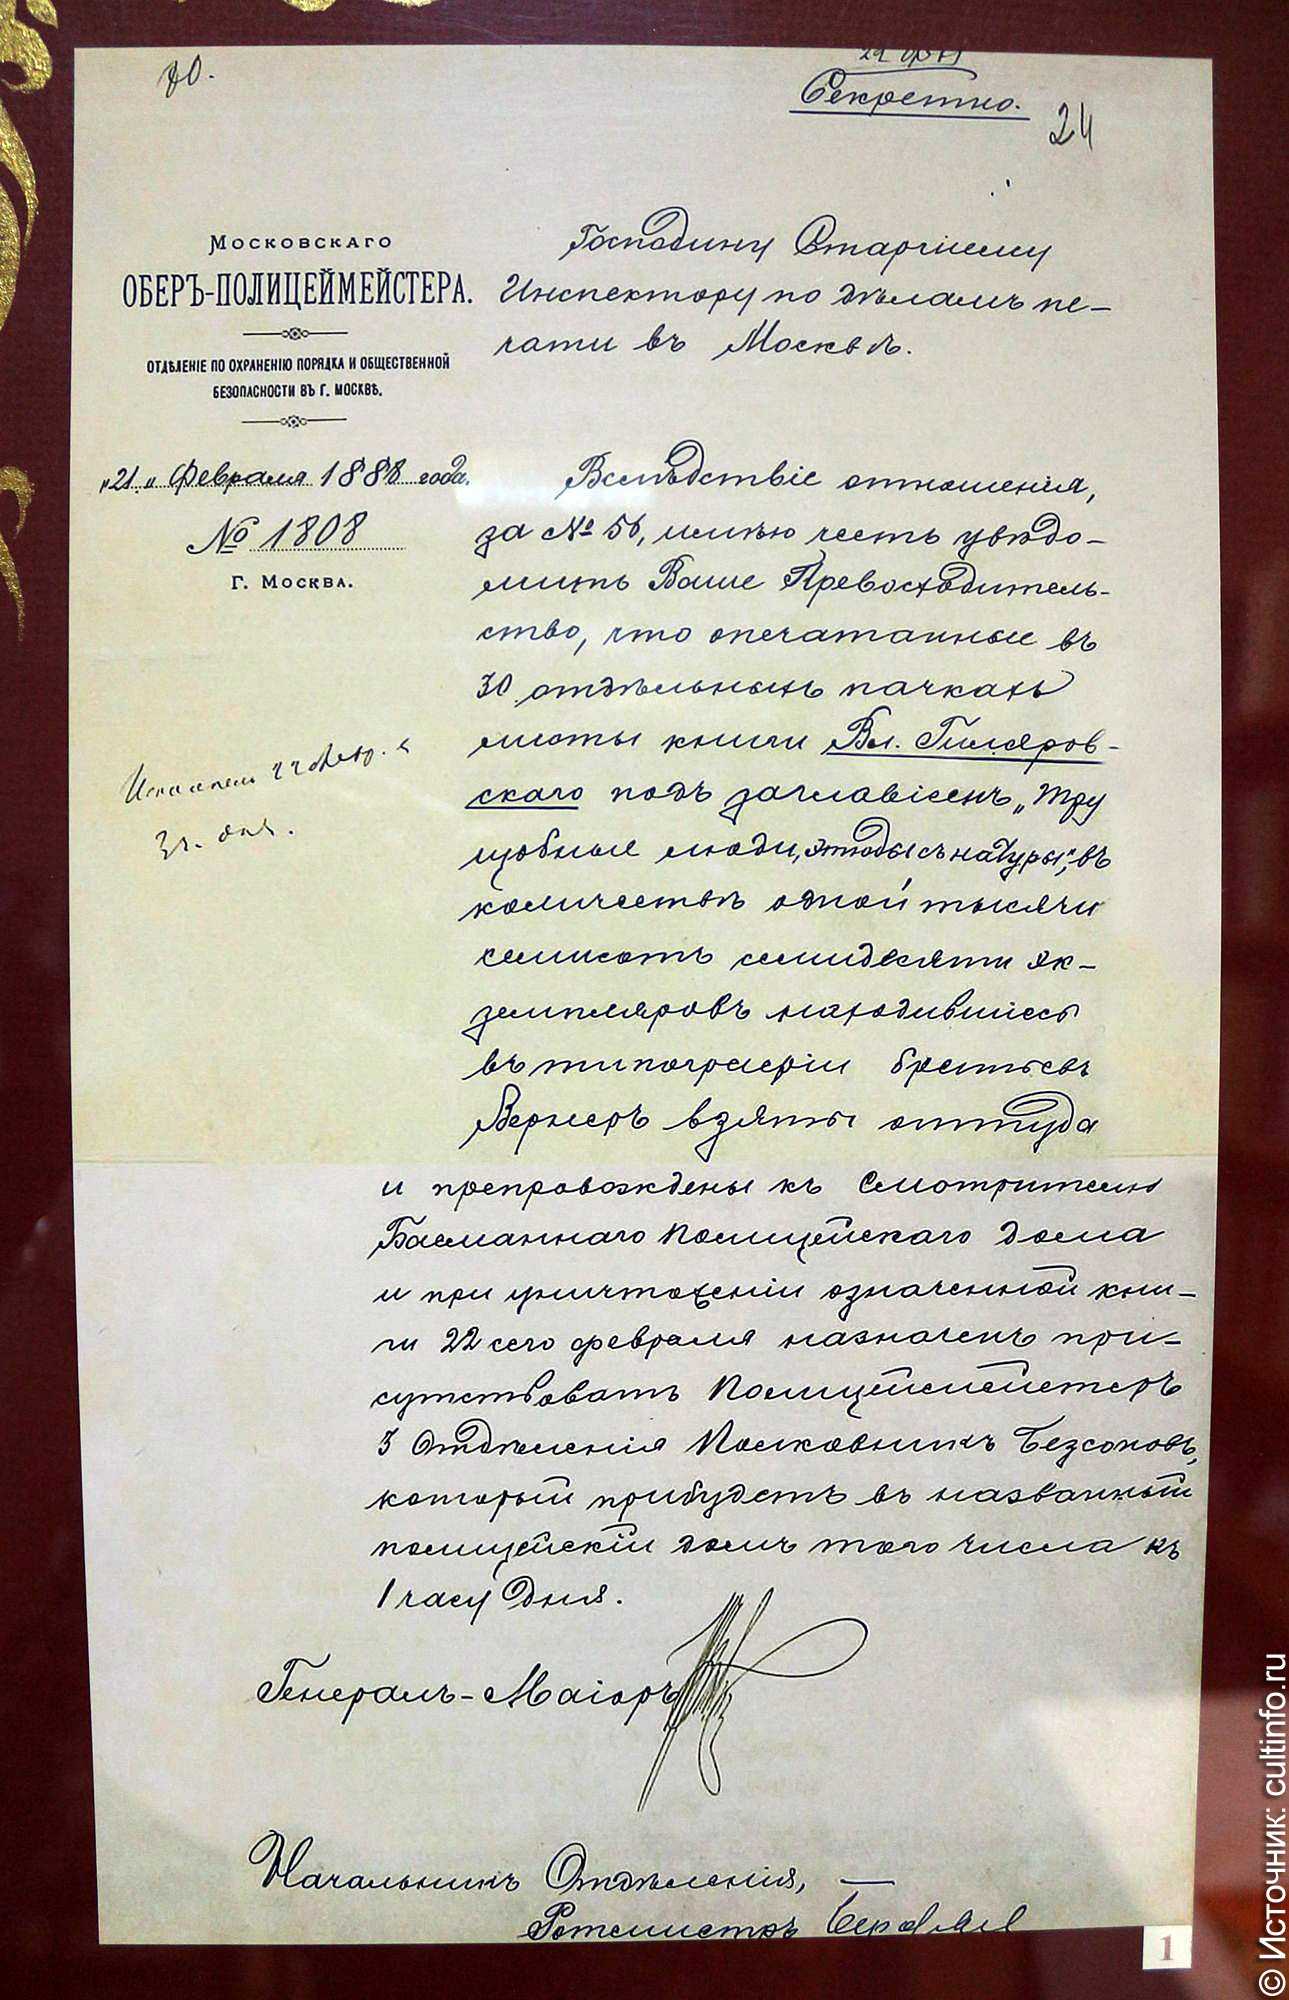 Секретно.
24
Московскаго
ОБЕРЪ-ПОЛИЦЕЙМЕЙСТЕРА.
ОТДѢЛЕНІЕ ПО ОХРАНЕНІЮ ПОРЯДКА И ОБЩЕСТВЕННОЙ
БЕЗОПАСНОСТИ ВЪ Г. МОСКВѢ.
„21„ Февраля 1888 года.
№ 1808
Г. Москва.
Господину Старшему
Инспектору по дѣламъ пе-
чати въ Москвѣ.
Вслѣдствіе отношенія,
за № 56, имѣю честь увѣдо-
мить Ваше Превосходитель-
ство, что опечатанные въ
30 отдѣльныхъ пачкахъ
листы книги Вл. Гиляров-
скаго подъ заглавіемъ „Тру
щобные люди, этюды съ натуры", въ
количествѣ одной тысячи
семисотъ семидесяти эк-
земпляровъ находившіеся
въ типографіи братьевъ
Вернеръ взяты оттуда
и препровождены къ Смотрителю
Басманнаго Полицейскаго дома
и при уничтоженіи означенной кни-
ги 22 сего февраля назначенъ при-
сутствовать Полицеймейстеръ
3 Отдѣленія Полковникъ Безсоновъ,
который прибудетъ въ названный
полицейскій домъ того числа къ
1 часу дня.
Генералъ-Маіоръ
Начальникъ Отдѣленія,
Ротмистръ Бердяев
1
© Источник: cultinfo.ru